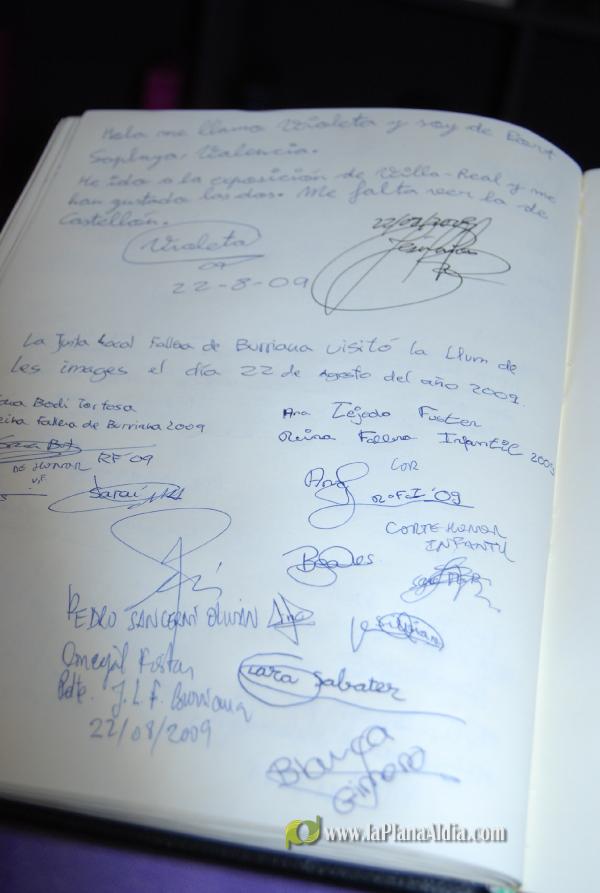 Hola me llamo Violeta y soy de Port
Saplaya, Valencia.
He ido a la exposición de Villa-Real y me
han gustado las dos. Me falta ver la de
Castellón.
Violeta
22-8-09
22/08/2009
La Junta Local Fallera de Burriana visitó la Llum de
les images el día 22 de Agosto del año 2009.
Bodi Tortosa
Reina Fallera de Burriana 2009
DE HONOR RF'09
Sarai
Ana Tejedo Fuster
Reina Fallera Infantil 2009
COR
Ana
R.F.I '09
CORTE HONOR
INFANTIL
PEDRO SANCERNI
Fuster
Pdte. J.L.F. Burriana
22/08/2009
Lara Sabater
Blanca
www.laPlanaAldia.com